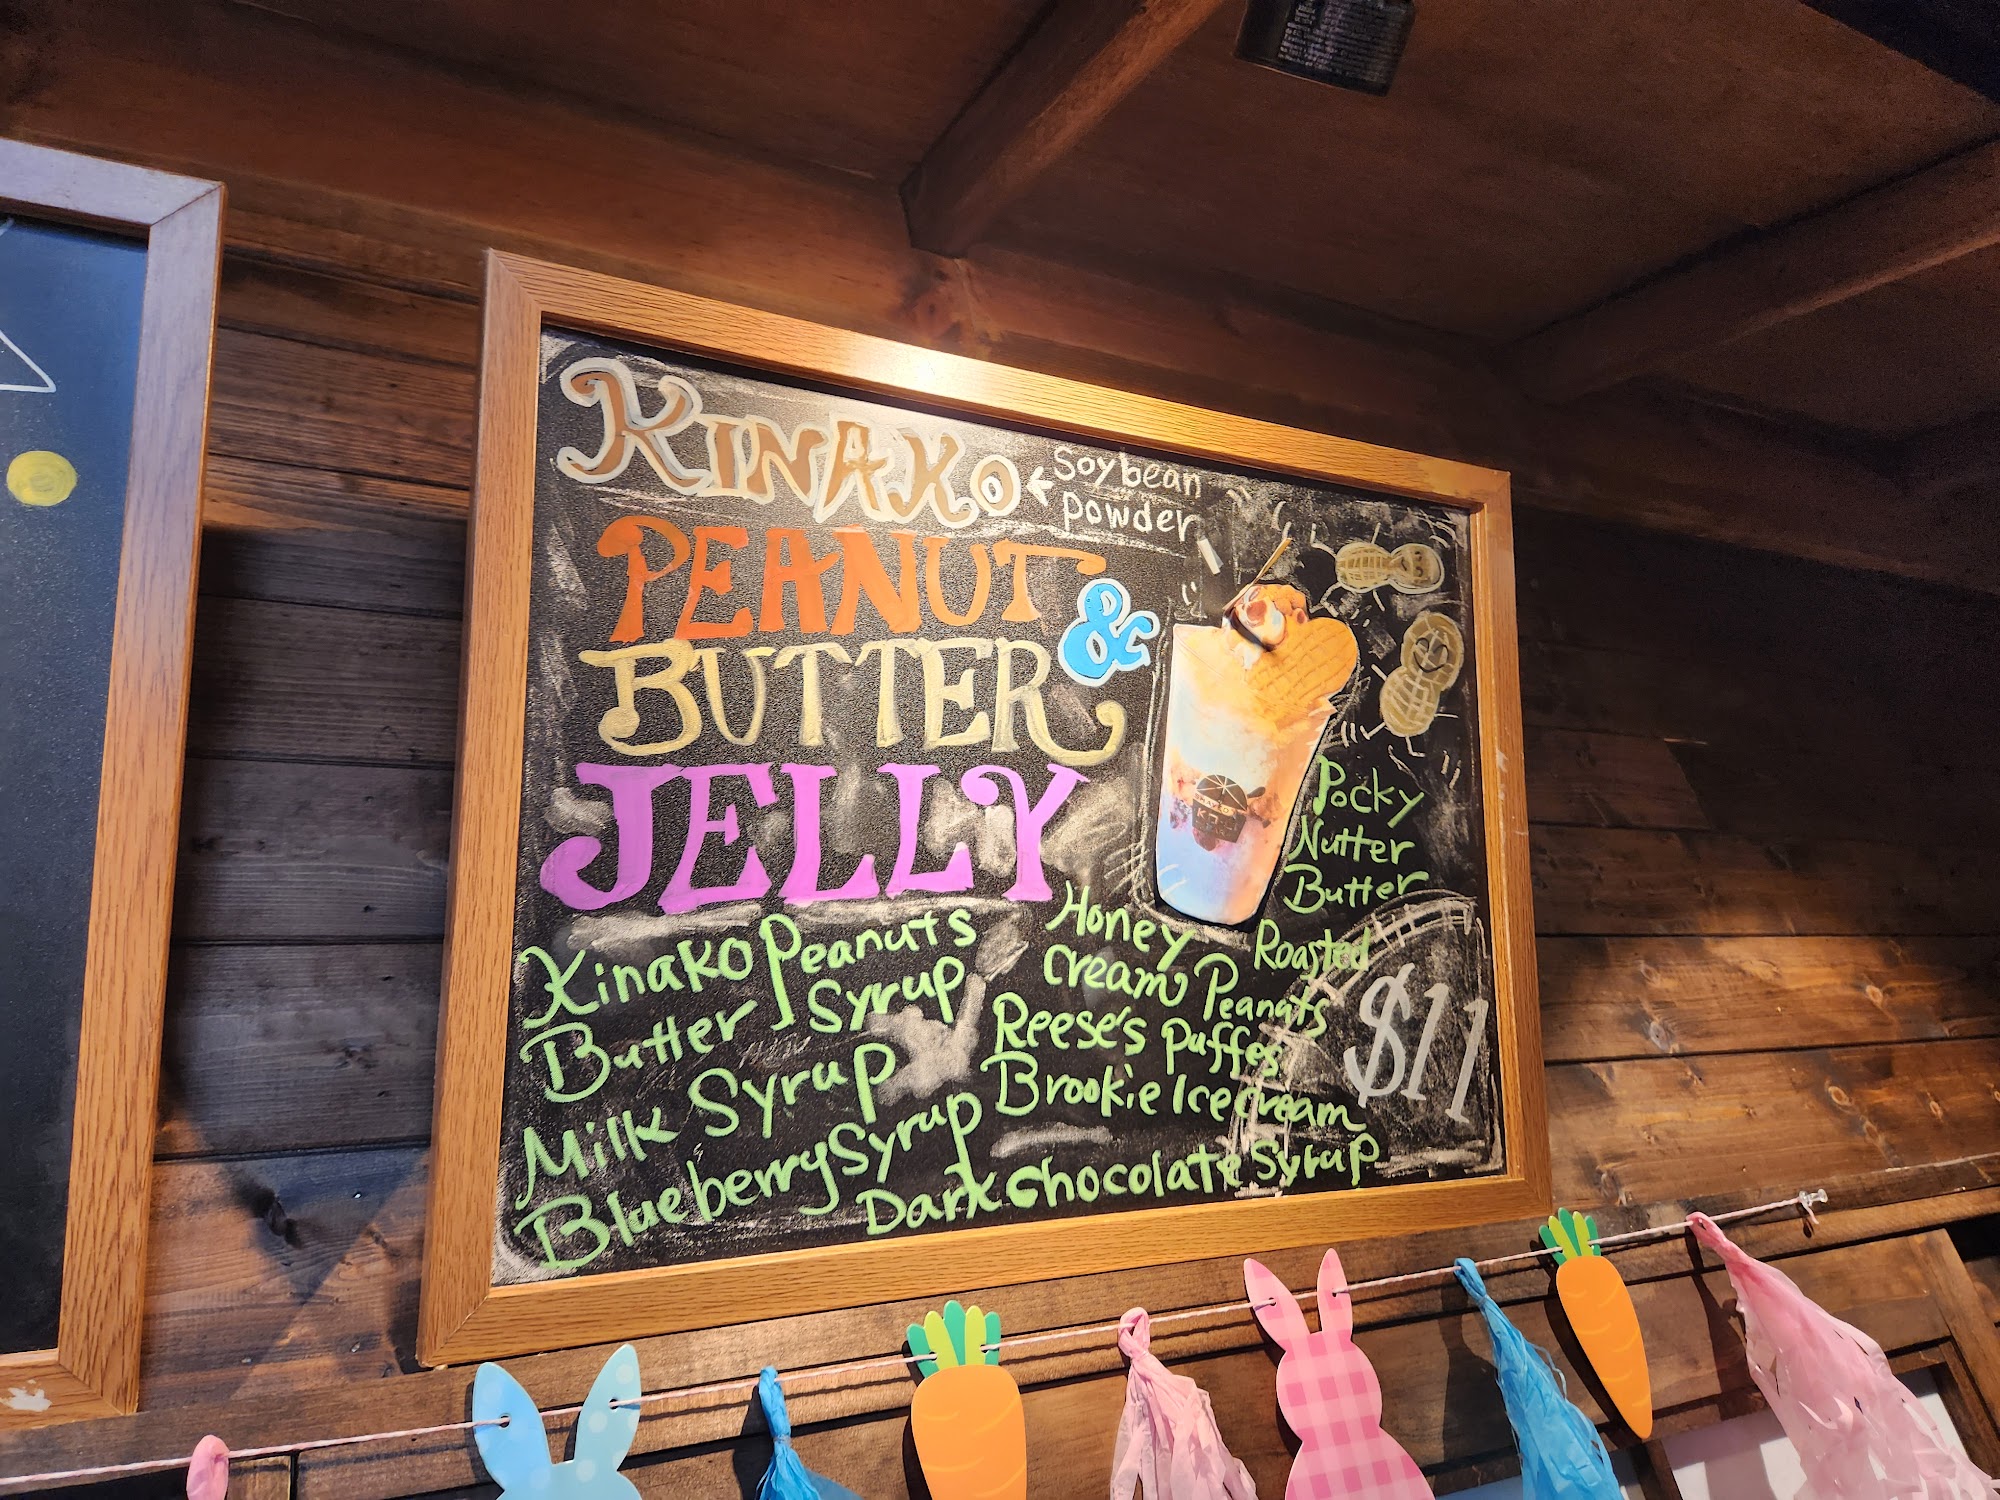 KINAKO ← Soybean
powder
PEANUT
&
BUTTER
JELLY
Kinako Peanuts
Butter Syrup
Milk Syrup
Blueberry Syrup
Honey
Cream
Reese's Puffes
Brookie Ice cream
Dark Chocolate Syrup
Pocky
Nutter
Butter
Roasted
Peanuts
$11